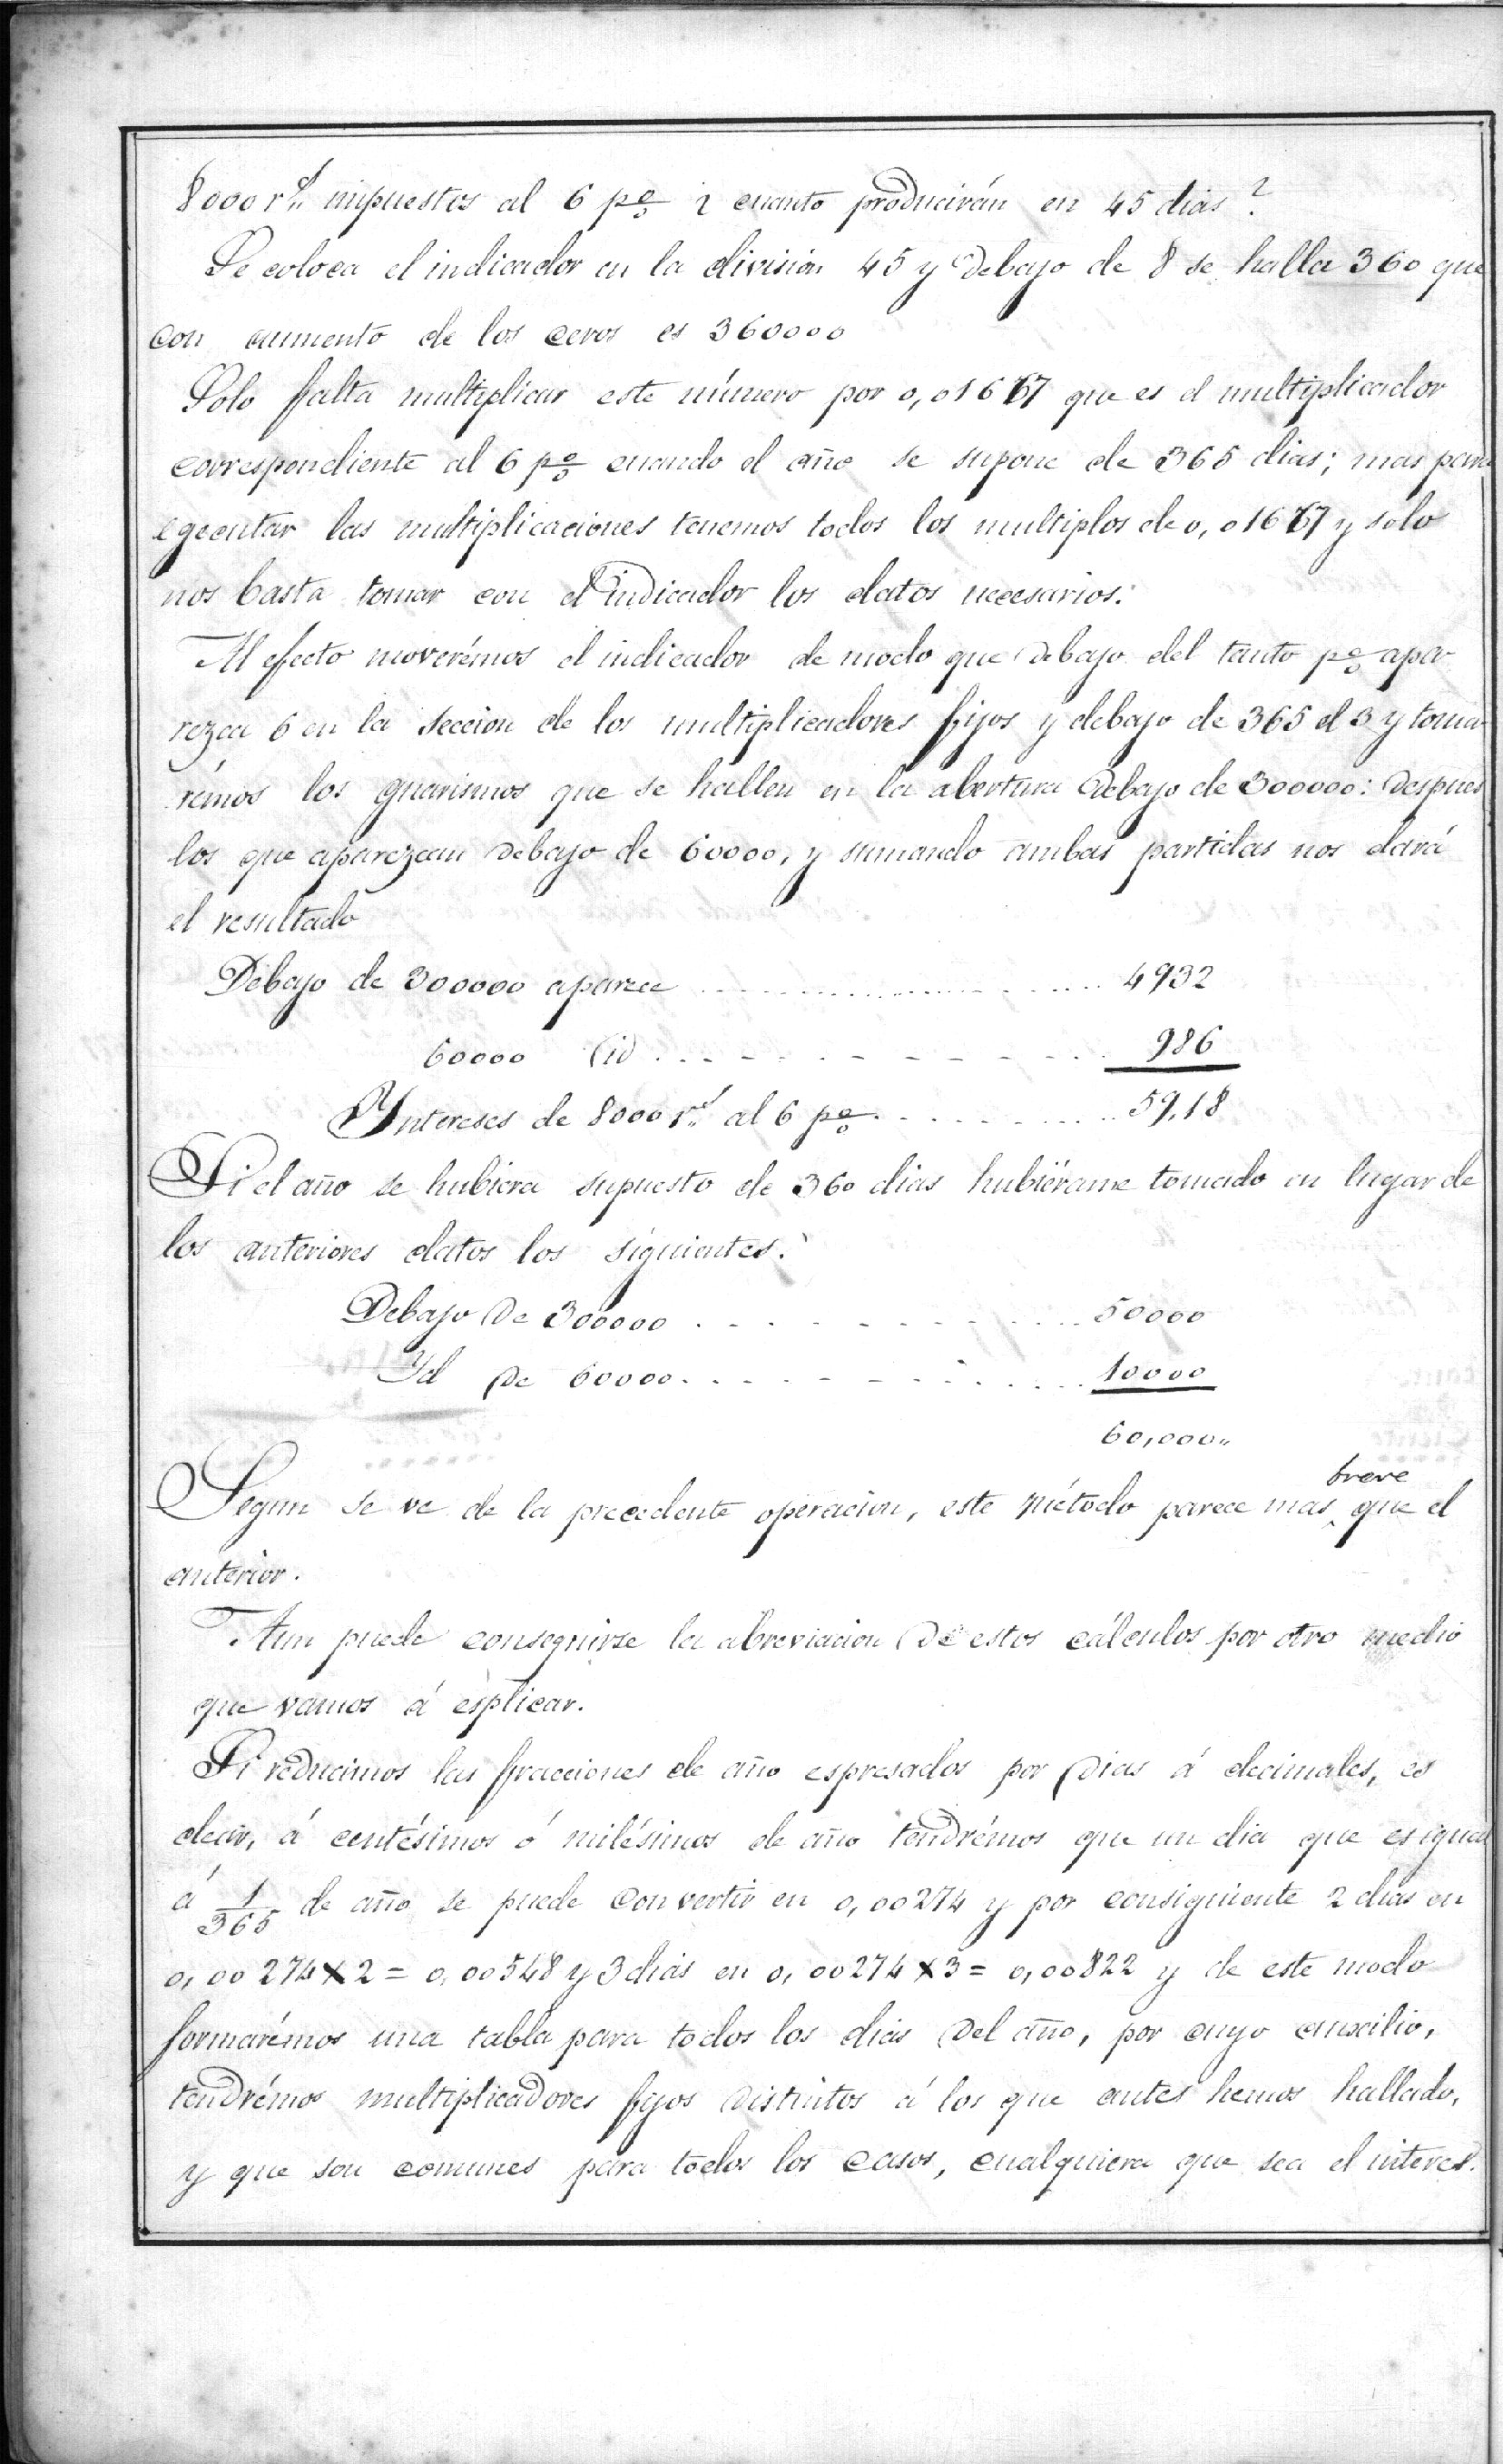 8000 r.ˢ impuestos al 6 p% ¿ cuanto producirán en 45 dias ?
Se coloca el indicador en la división 45 y debajo de 8 se halla 360 que
con aumento de los ceros es 360000
Solo falta multiplicar este número por 0,01667 que es el multiplicador
correspondiente al 6 p% cuando el año se supone de 365 dias; mas para
egecutar las multiplicaciones tenemos todos los multiplos de 0,01667 y solo
nos basta tomar con el indicador los datos necesarios:
Al efecto moverémos el indicador de modo que debajo del tanto p% apa
rezca 6 en la seccion de los multiplicadores fijos y debajo de 365 el 3 y toma
rémos los guarismos que se hallen en la abertura debajo de 300000: despues
los que aparezcan debajo de 60000, y sumando ambas partidas nos dará
el resultado
Debajo de 300000 aparece .................... 4932
60000 id .................... 986
Yntereses de 8000 r.ˢ al 6 p% .......... 59,18
Si el año se hubiera supuesto de 360 dias hubiérame tomado en lugar de
los anteriores datos los siguientes:
Debajo de 300000 .................... 50000
Yd de 60000 .................... 10000
60,000"
Segun se ve de la precedente operacion, este método parece mas breve que el
anterior.
Aun puede conseguirse la abreviacion de estos cálculos por otro medio
que vamos á esplicar.
Si reducimos las fracciones de año espresados por dias á decimales, es
decir, á centésimos ó milésimos de año tendrémos que un dia que es igual
á 1/365 de año se puede convertir en 0,00274 y por consiguiente 2 dias en
0,00274 × 2 = 0,00548 y 3 dias en 0,00274 × 3 = 0,00822 y de este modo
formarémos una tabla para todos los dias del año, por cuyo aucsilio,
tendrémos multiplicadores fijos distintos á los que antes hemos hallado,
y que son comunes para todos los casos, cualquiera que sea el interes.